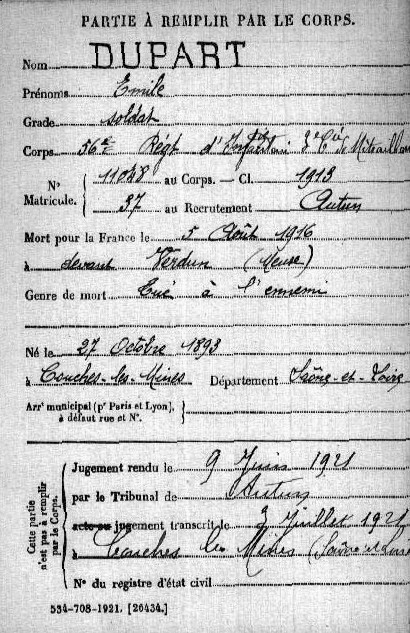 PARTIE À REMPLIR PAR LE CORPS.
Nom DUPART
Prénoms Emile
Grade soldat
Corps 56e Régt d'Infanterie 3e Cie de Mitrailleu
N° Matricule. { 11048 au Corps. — Cl. 1913
37 au Recrutement Autun
Mort pour la France le 5 Août 1916
à devant Verdun (Meuse)
Genre de mort Tué à l'ennemi
Né le 27 Octobre 1893
à Couches-les-Mines Département Saône-et-Loire
Arrt municipal (pr Paris et Lyon), à défaut rue et N°. }
Cette partie n'est pas à remplir par le Corps.
Jugement rendu le 9 Juin 1921
par le Tribunal de Autun
acte ou jugement transcrit le 2 Juillet 1921
à Couches les Mines (Saône et Loire
N° du registre d'état civil
534-708-1921. [26434.]